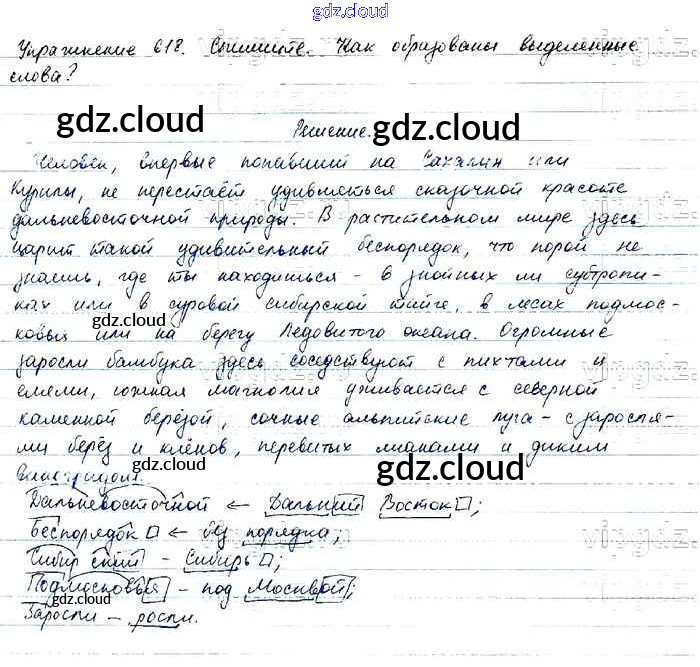 gdz.cloud
Упражнение 618. Спишите. Как образованы выделенные
слова?
gdz.cloud
gdz.cloud
Решение.
Человек, впервые попавший на Сахалин или
Курилы, не перестаёт удивляться сказочной красоте
дальневосточной природы. В растительном мире здесь
царит такой удивительный беспорядок, что порой не
знаешь, где ты находишься - в знойных ли субтропи-
ках или в суровой сибирской тайге, в лесах подмос-
ковья или на берегу Ледовитого океана. Огромные
gdz.cloud
заросли бамбука здесь соседствуют с пихтами и
елями, южная магнолия уживается с северной
каменной берёзой, сочные альпийские луга - с заросля-
ми берёз и клёнов, перевитых лианами и диким
виноградом.
gdz.cloud
gdz.cloud
Дальневосточной ← Дальний Восток;
беспорядок ← без порядка;
Сибирский - Сибирь;
Подмосковья - под Москвой;
gdz.cloud
Заросли - росли.